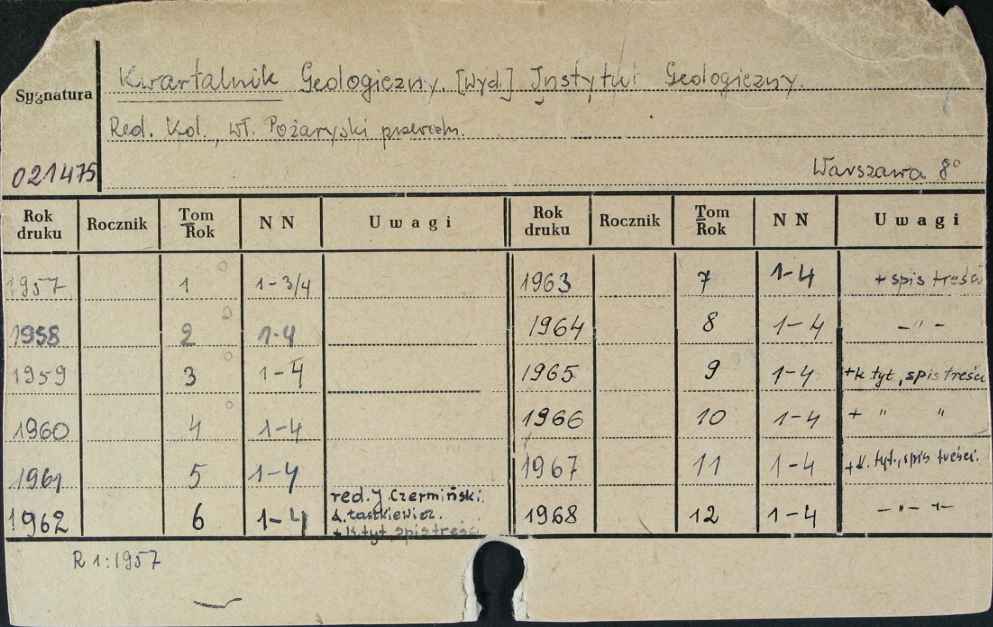 Kwartalnik Geologiczny. [Wyd.] Instytut Geologiczny.
Sygnatura
Red. Kol., Wł. Pożaryski przewodn.
021475
Warszawa 8°
Rok druku Rocznik Tom Rok N N Uwagi Rok druku Rocznik Tom Rok N N Uwagi
1957 1 1-3/4 1963 7 1-4 + spis treści
1958 2 1-4 1964 8 1-4 - " -
1959 3 1-4 1965 9 1-4 + k tyt, spis treści
1960 4 1-4 1966 10 1-4 + " "
1961 5 1-4 1967 11 1-4 + k. tyt., spis treści.
1962 6 1-4 red. J Czermiński, + k. tyt, spis treści 1968 12 1-4 - " -
R 1:1957